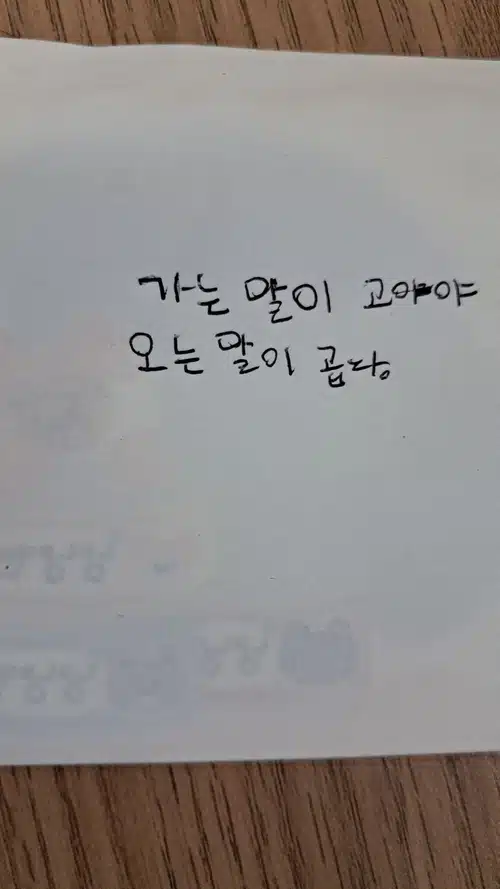 가는 말이 고와야
오는 말이 곱다.